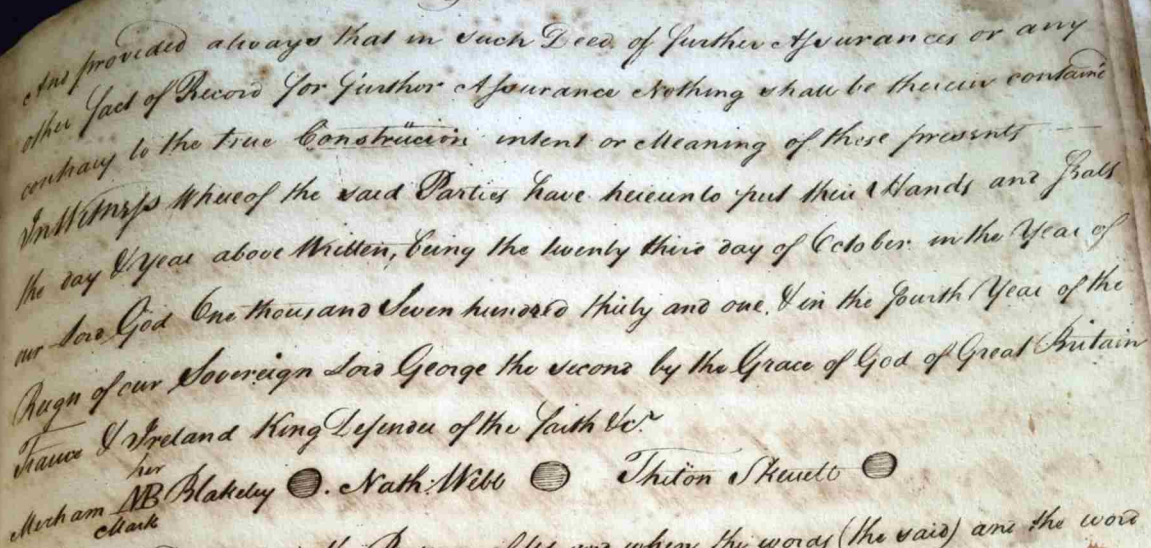 And provided always that in such Deed of further Assurances or any
other fact of Record for further Assurance Nothing shall be therein containd
contrary to the true Construcion intent or Meaning of these presents
In Witness Whereof the said Parties have hereunto put their Hands and Seals
the day & Year above Written, being the twenty third day of October in the Year of
our Lord God One thousand Seven hundred thirty and one. & in the fourth Year of the
Reign of our Sovereign Lord George the second by the Grace of God of Great Britain
France & Ireland King Defender of the faith &c.
her
Merham NB Blakeley . Nath: Webb
Mark
when the words (the said) and the word